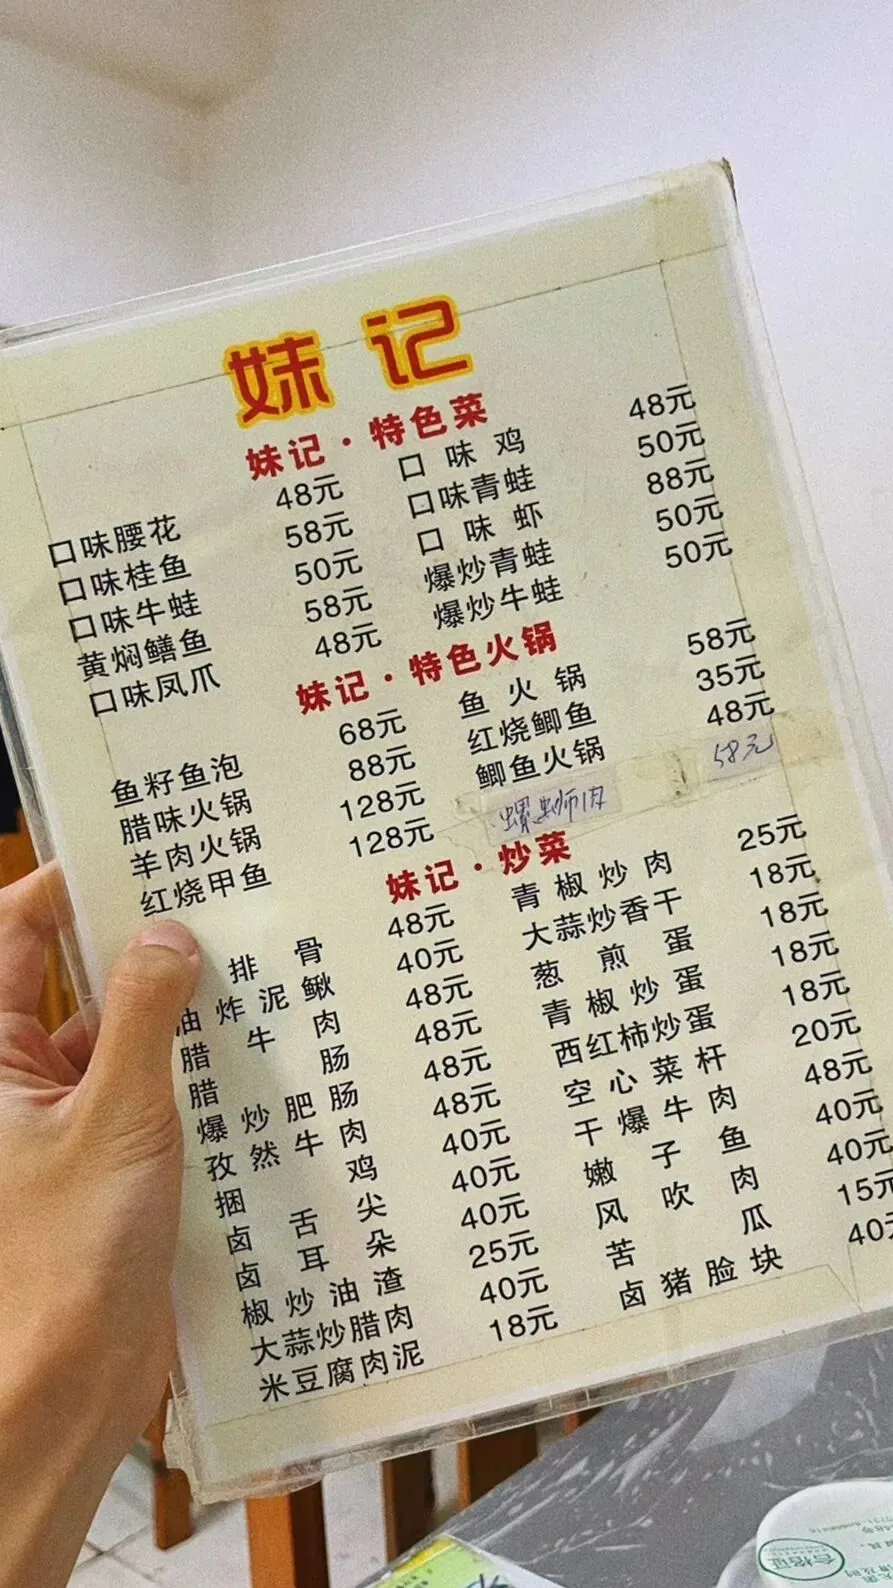 妹记
妹记·特色菜
口味腰花 48元 口味鸡 48元
口味桂鱼 58元 口味青蛙 50元
口味牛蛙 50元 口味虾 88元
黄焖鳝鱼 58元 爆炒青蛙 50元
口味凤爪 48元 爆炒牛蛙 50元
妹记·特色火锅
鱼籽鱼泡 68元 鱼火锅 58元
腊味火锅 88元 红烧鲫鱼 35元
羊肉火锅 128元 鲫鱼火锅 48元
红烧甲鱼 128元 螺蛳肉 58元
妹记·炒菜
排骨 48元 青椒炒肉 25元
油炸泥鳅 40元 大蒜炒香干 18元
腊牛肉 48元 葱煎蛋 18元
腊肠 48元 青椒炒蛋 18元
爆炒肥肠 48元 西红柿炒蛋 18元
孜然牛肉 48元 空心菜杆 20元
捆鸡 40元 干爆牛肉 48元
卤舌尖 40元 嫩子鱼 40元
卤耳朵 40元 风吹肉 40元
椒炒油渣 25元 苦瓜 15元
大蒜炒腊肉 40元 卤猪脸块 40元
米豆腐肉泥 18元
合格证